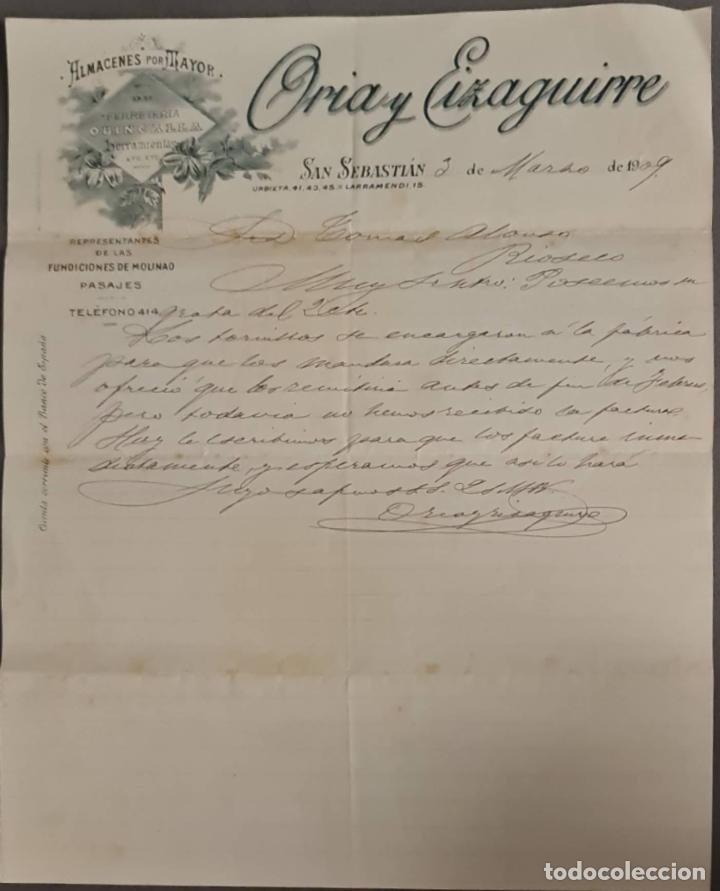 ALMACENES POR MAYOR
DE
FERRETERIA
QUINCALLA
herramientas
ETC. ETC.
Oria y Eizaguirre
SAN SEBASTIÁN 3 de Marzo de 1909
URBIETA, 41, 43, 45. LARRAMENDI, 15.
REPRESENTANTES
DE LAS
FUNDICIONES DE MOLINAO
PASAJES
TELÉFONO 414
Cuenta corriente con el Banco De España
Alonso
Rioseco
Muy Sr ntro: Poseemos su
grata del
Los tornillos se encargaron á la fábrica
para que los mandara directamente, y nos
ofreció que los remitiria antes de fin de Febrero,
pero todavia no hemos recibido la factura.
Hoy le escribimos para que los facture inme
diatamente, y esperamos que asi lo hará
Oria y Eizaguirre
todocoleccion.net